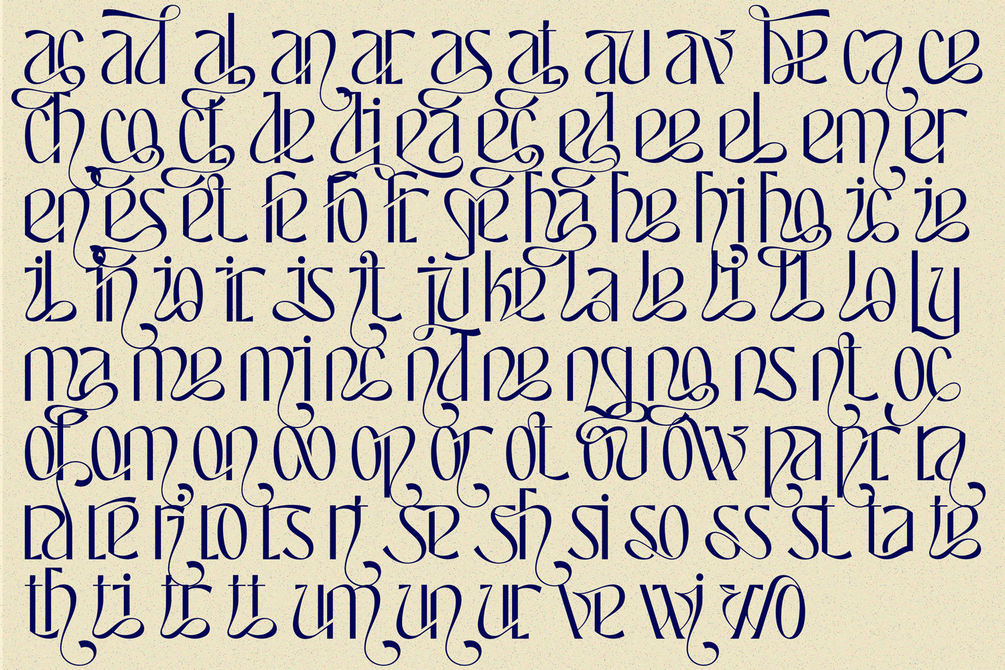 ac ad al an ar as at au av be ca ce
ch co ct de di ea ec ed ee el em er
en es et fe fo fr ge ha he hi ho ic ie
il in io ir is it ju ke la le li ll lo ly
ma me mi nc nd ne ng no ns nt oc
of om on oo op or ot ou ow pa pr ra
rd re ri ro rs rt se sh si so ss st ta te
th ti tr tt um un ur ve wi wo